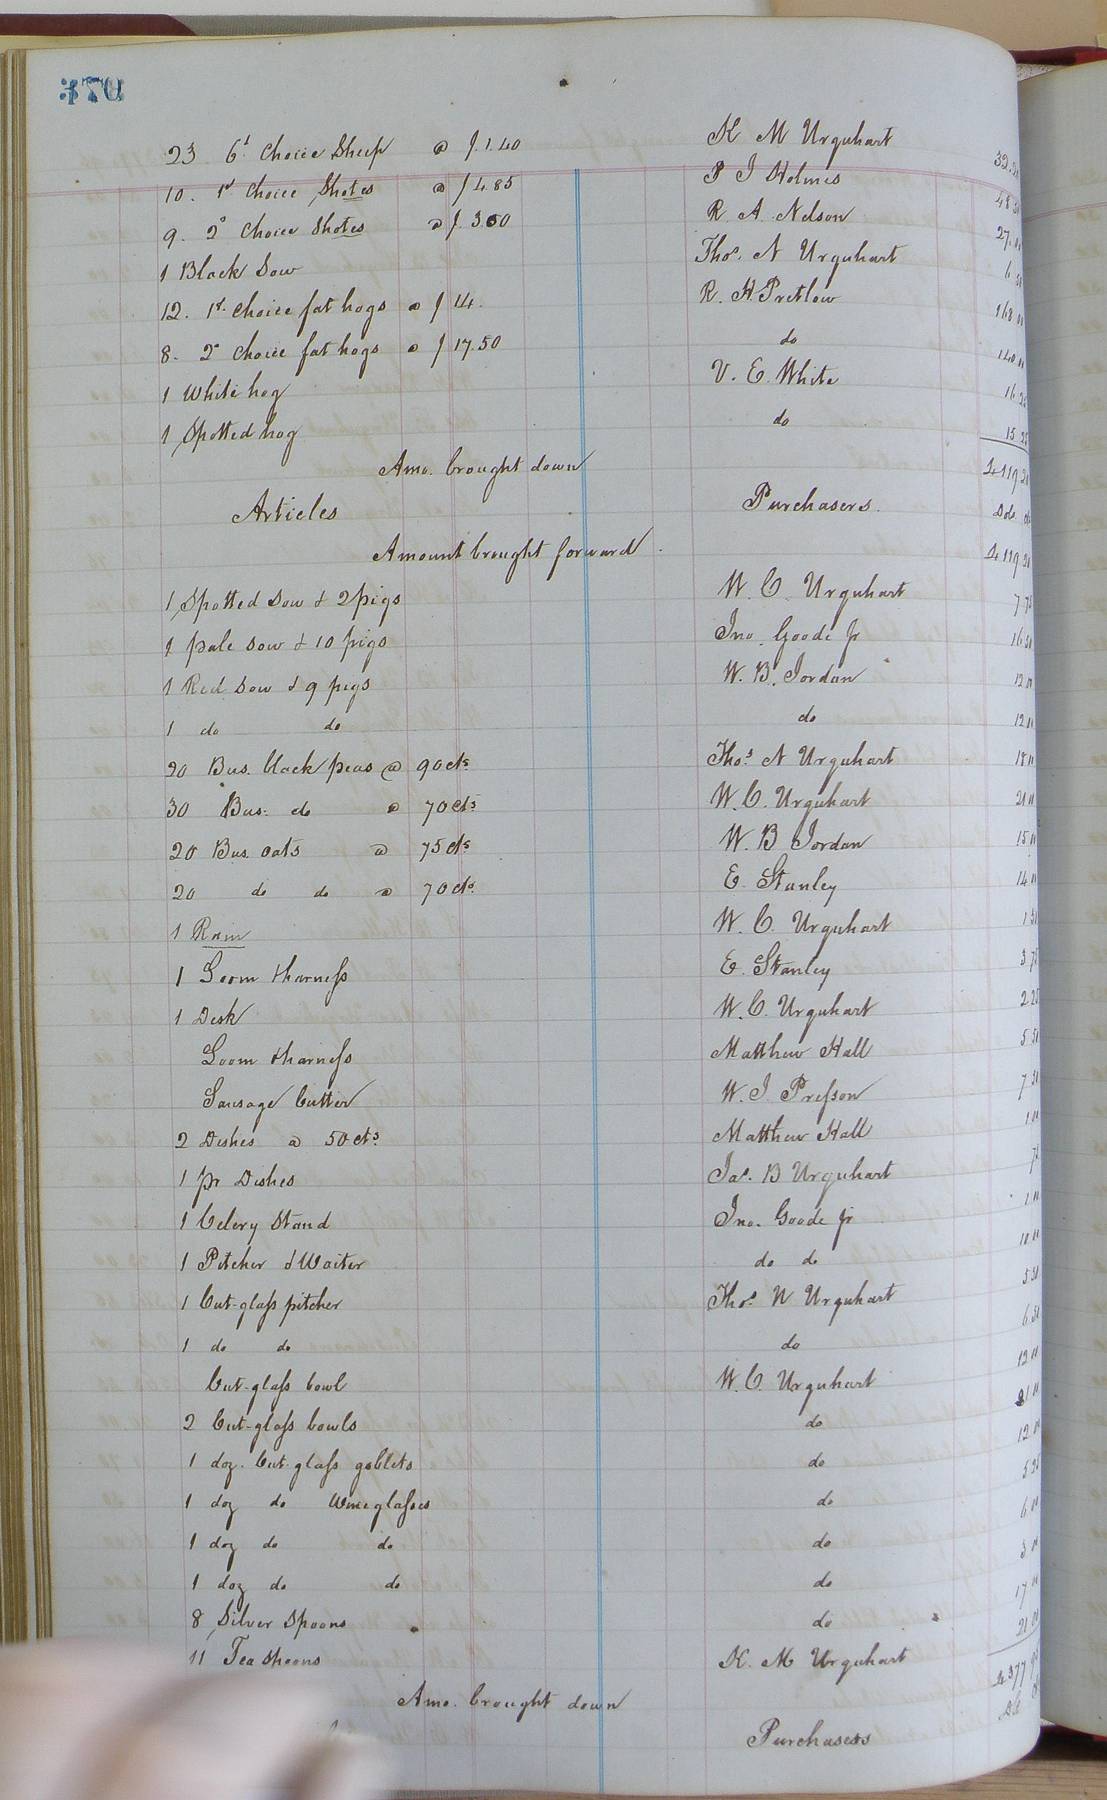 370
23 6th Choice Sheep @ $1.40 K M Urquhart 32.20
10. 1st Choice Shotes @ $4.85 P J Holmes 48.50
9. 2d Choice Shotes @ $3.00 R. A. Nelson 27.00
1 Black Sow Thos. N Urquhart 6.50
12. 1st Choice fat hogs @ $14. R. H. Pretlow 168.00
8. 2d Choice fat hogs @ $17.50 do 140.00
1 White hog V. E. White 16.25
1 Spotted hog do 15.25
Amo. brought down 4119.20
Articles Purchasers. Dols. cts
Amount brought forward. 4119.20
1 Spotted Sow & 2 pigs W. C. Urquhart 7.75
1 pale Sow & 10 pigs Jno. Goode Jr 16.50
1 Red Sow & 9 pigs W. B. Jordan 12.00
1 do do do 12.00
20 Bus. black peas @ 90cts. Thos N Urquhart 18.00
30 Bus. do @ 70cts W. C. Urquhart 21.00
20 Bus. oats @ 75cts W. B Jordan 15.00
20 do do @ 70cts. E. Stanley 14.00
1 Ram W. C. Urquhart 1.50
1 Loom & harness E. Stanley 3.75
1 Desk W. C. Urquhart 2.25
Loom & harness Matthew Hall 5.50
Sausage Cutter W. J Presson 7.50
2 Dishes @ 50cts Matthew Hall 1.00
1 pr Dishes Jas. B Urquhart 75
1 Celery Stand Jno. Goode Jr 1.00
1 Pitcher & Waiter do do 10.00
1 Cut-glass pitcher Thos N Urquhart 5.50
1 do do do 6.50
Cut-glass bowl W. C. Urquhart 12.00
2 Cut-glass bowls do 21.00
1 doz. Cut-glass goblets do 12.00
1 doz do Wineglasses do 5.25
1 doz do do do 6.00
1 doz do do do 3.00
8 Silver Spoons do 17.00
11 Tea Spoons K. M Urquhart 21.00
Amo. brought down
Purchasers